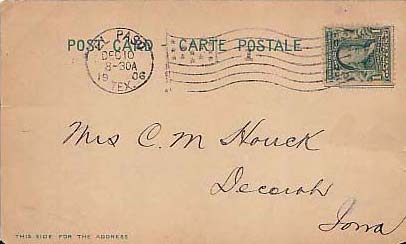 POST CARD CARTE POSTALE
EL PASO
DEC 10
8-30A
1906
TEX.
1
Mrs C. M Houck
Decorah
Iowa
THIS SIDE FOR THE ADDRESS